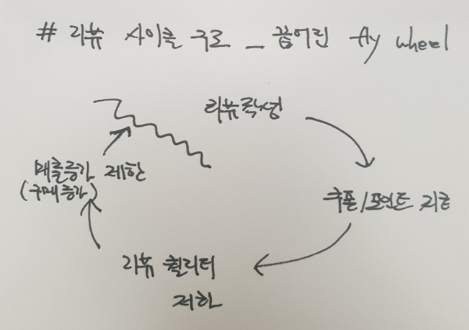 # 리뷰 사이클 구조 _ 끊어진 fly wheel
리뷰작성
쿠폰/포인트 지급
리뷰 퀄리티
저하
매출증가 제한
(구매증가)